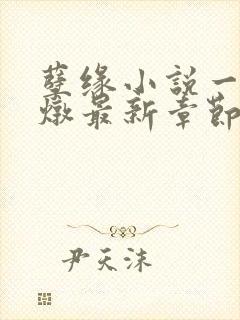 孽缘小説一
燉最新章節
尹天沫